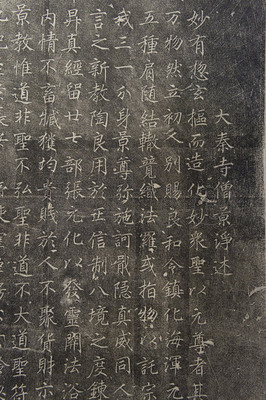 大秦寺僧景淨述
妙有惣玄樞而造化妙衆聖以元尊者其
万物然立初人別賜良和令鎮化海渾元
五種肩随結轍競織法羅或指物以託宗
我三一分身景尊弥施訶戢隱真威同人
言之新教陶良用於正信制八境之度錬
昇真經留廿七部張元化以發靈關法浴
内情不畜臧獲均貴賤於人不聚貨財示
景教惟道非聖不弘聖非道不大道聖符